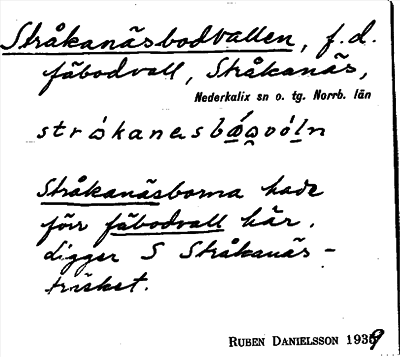 Stråkanäsbodvallen, f.d.
fäbodvall, Stråkanäs,
Nederkalix sn o. tg. Norrb. län
Stråkanäsborna hade
förr fäbodvall här.
Ligger S Stråkanäs-
träsket.
RUBEN DANIELSSON 1939